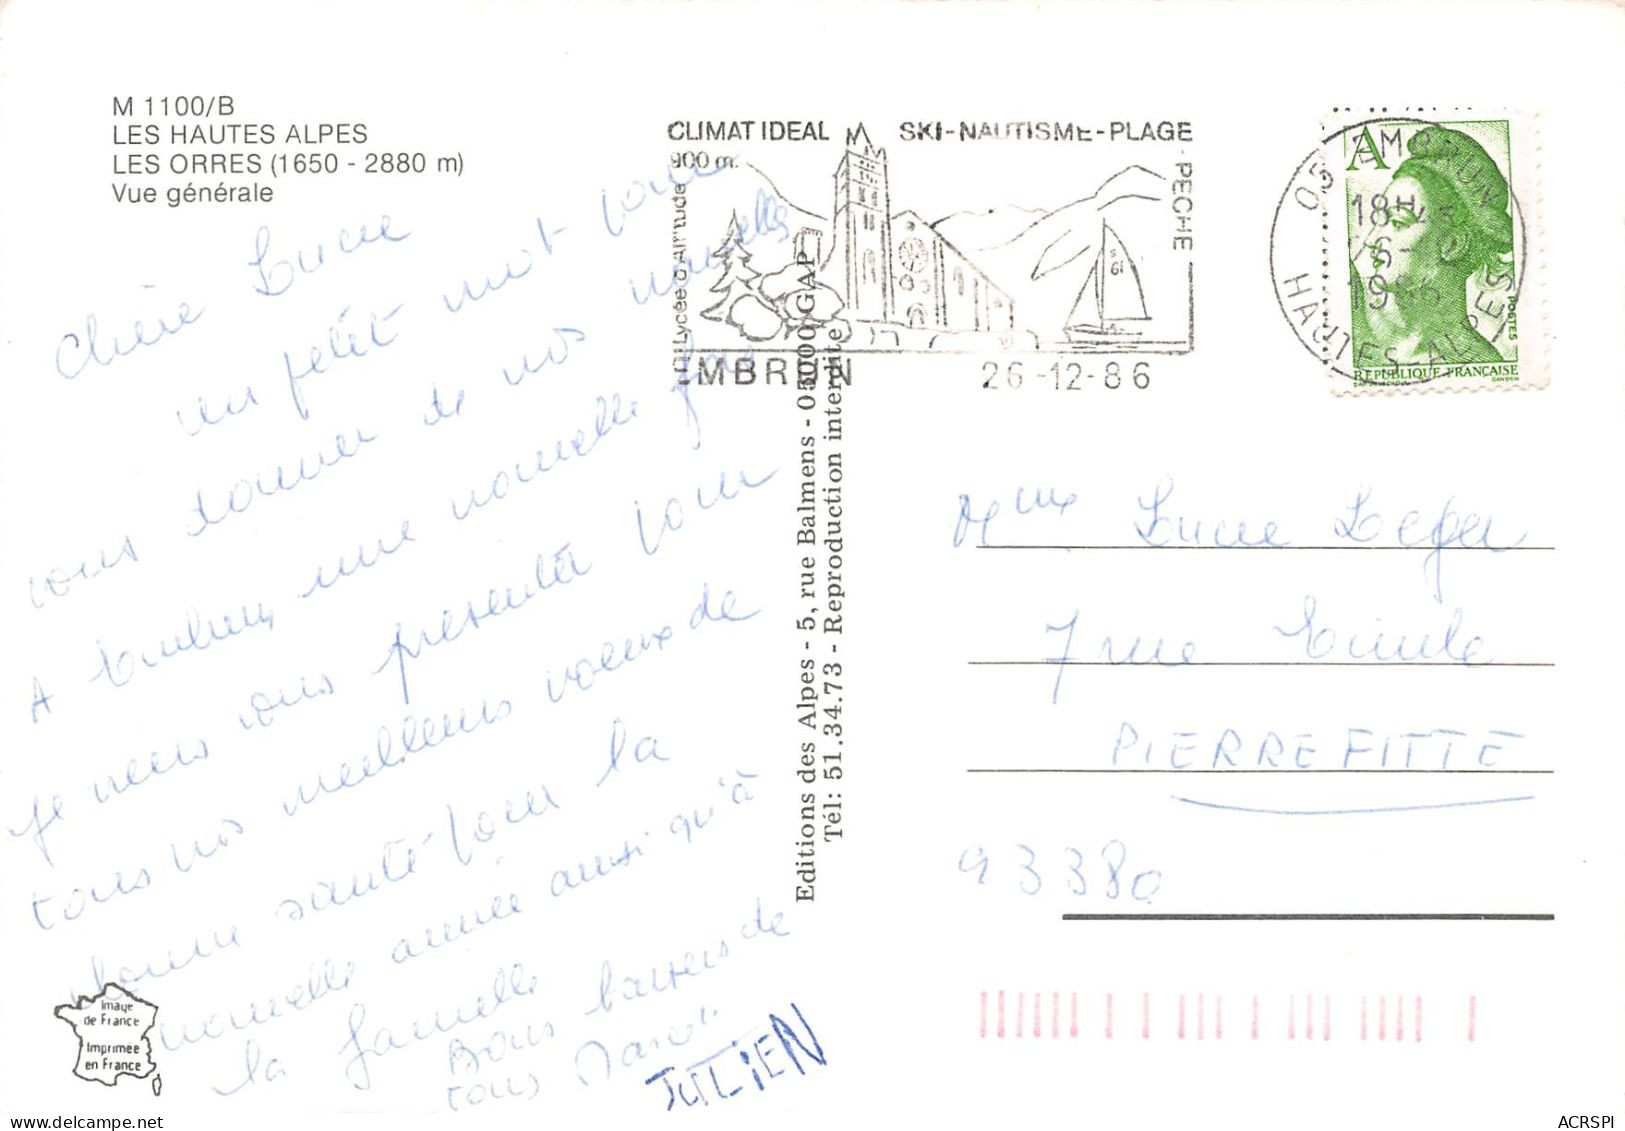 M 1100/B
LES HAUTES ALPES
LES ORRES (1650 - 2880 m)
Vue générale
Chère Lucie
un petit mot pour
vous donner de nos nouvelles
A Embrun, une nouvelle fois
Je viens vous présenter pour
tous nos meilleurs voeux de
bonne santé pour la
nouvelle année ainsi qu'à
la famille
Bons baisers de
tous
JULIEN
Image
de France
Imprimée
en France
Editions des Alpes - 5, rue Balmens - 05000 GAP
Tél: 51.34.73 - Reproduction interdite
CLIMAT IDEAL SKI-NAUTISME-PLAGE
PECHE
900 m.
Lycée d'Altitude
EMBRUN 26-12-86
05 EMBRUN
18H45
26-12
1986
HAUTES-ALPES
A
POSTES
REPUBLIQUE FRANÇAISE
GANDON
Mme Lucie Leger
7 rue
PIERREFITTE
93380
ACRSPI